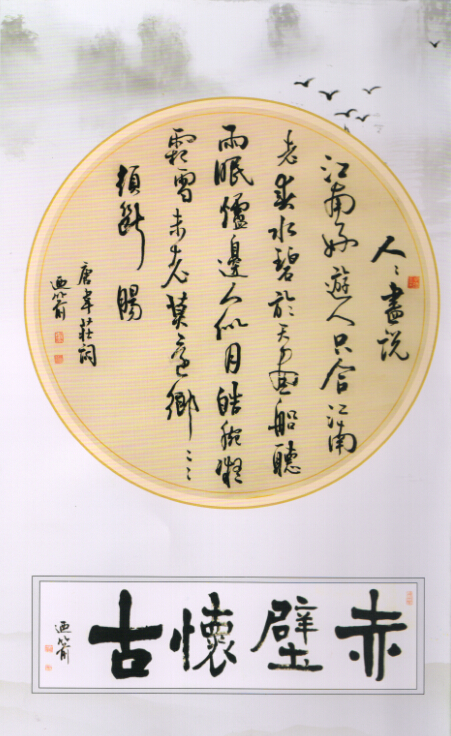 人〻盡説
江南好遊人只合江南
老春水碧於天畫船聽
雨眠壚邊人似月皓腕凝
霜雪未老莫還鄉〻〻
須斷腸
唐韋莊詞
赤壁懷古